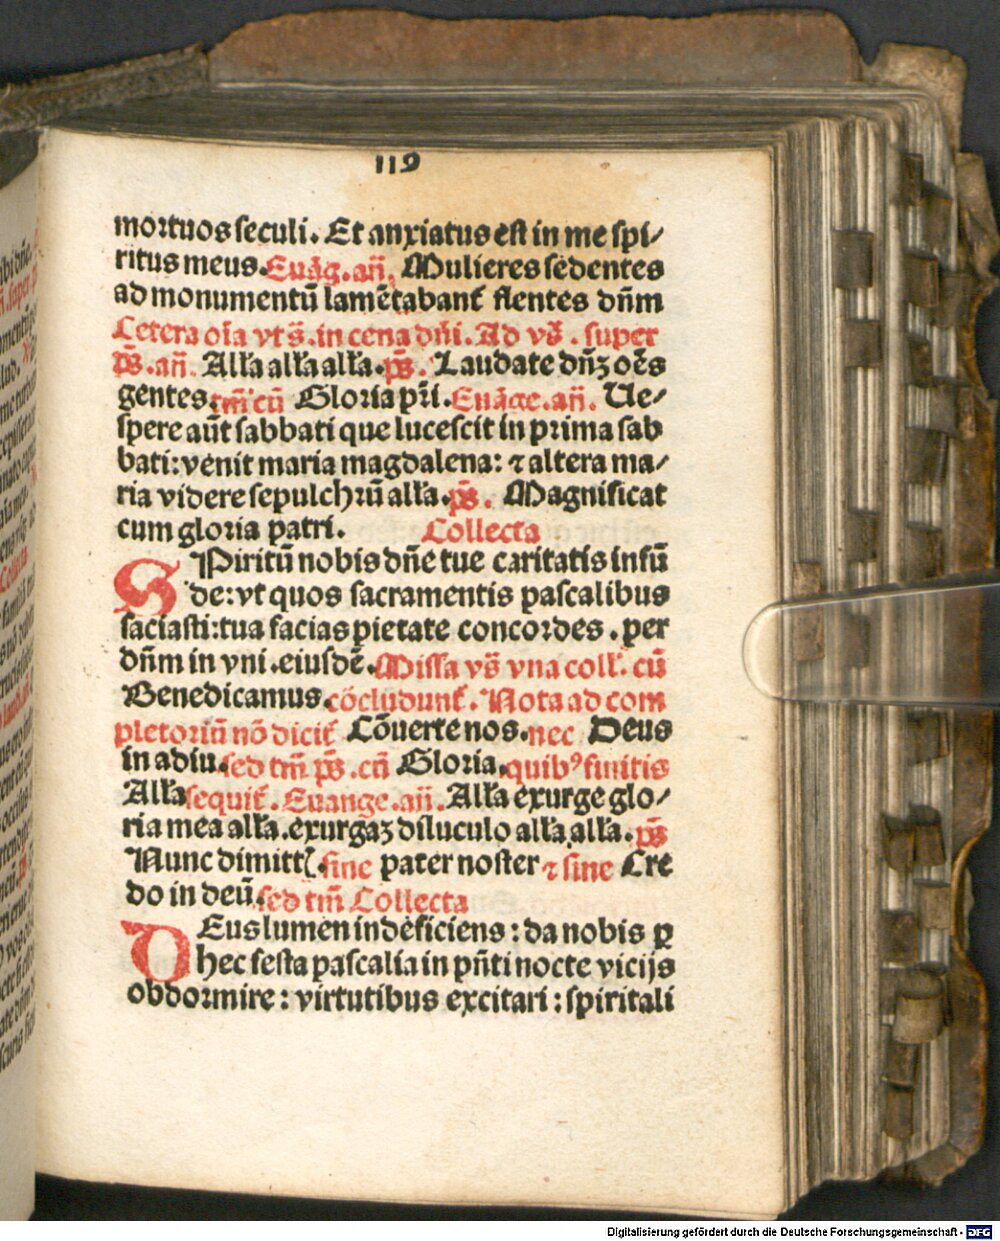 119
mortuos seculi. Et anxiatus est in me spi/
ritus meus. Euãg. añ. Mulieres sedentes
ad monumentū lamētabant᷑ flentes dñm
Cetera oĩa vt s̃. in cena dñi. Ad vs̃. super
ps̃. añ. Alľa alľa alľa. ps̃. Laudate dñʒ oẽs
gentes. tm̃ cū Gloria pr̃i. Euãge. añ. Ue/
spere aūt sabbati que lucescit in prima sab
bati: venit maria magdalena: ⁊ altera ma/
ria videre sepulchrū alľa. ps̃. Magnificat
cum gloria patri. Collecta
SPiritū nobis dñe tue caritatis infū
de: vt quos sacramentis pascalibus
saciasti: tua facias pietate concordes. per
dñm in vni. eiusdē. Missa vs̃ vna coll᷑. cū
Benedicamus. cōcludunt᷑. Nota ad com
pletoriū nō dicit᷑ Cōuerte nos. nec Deus
in adiu. sed tm̃ ps̃. cū Gloria. quibꝰ finitis
Alľa sequit᷑. Euange. añ. Alľa exurge glo/
ria mea alľa. exurgaʒ diluculo alľa alľa. ps̃
Nunc dimittꝭ. sine pater noster ⁊ sine Cre
do in deū. sed tm̃ Collecta
DEus lumen indeficiens: da nobis ꝑ
hec festa pascalia in pñti nocte vicijs
obdormire: virtutibus excitari: spiritali
Digitalisierung gefördert durch die Deutsche Forschungsgemeinschaft - DFG